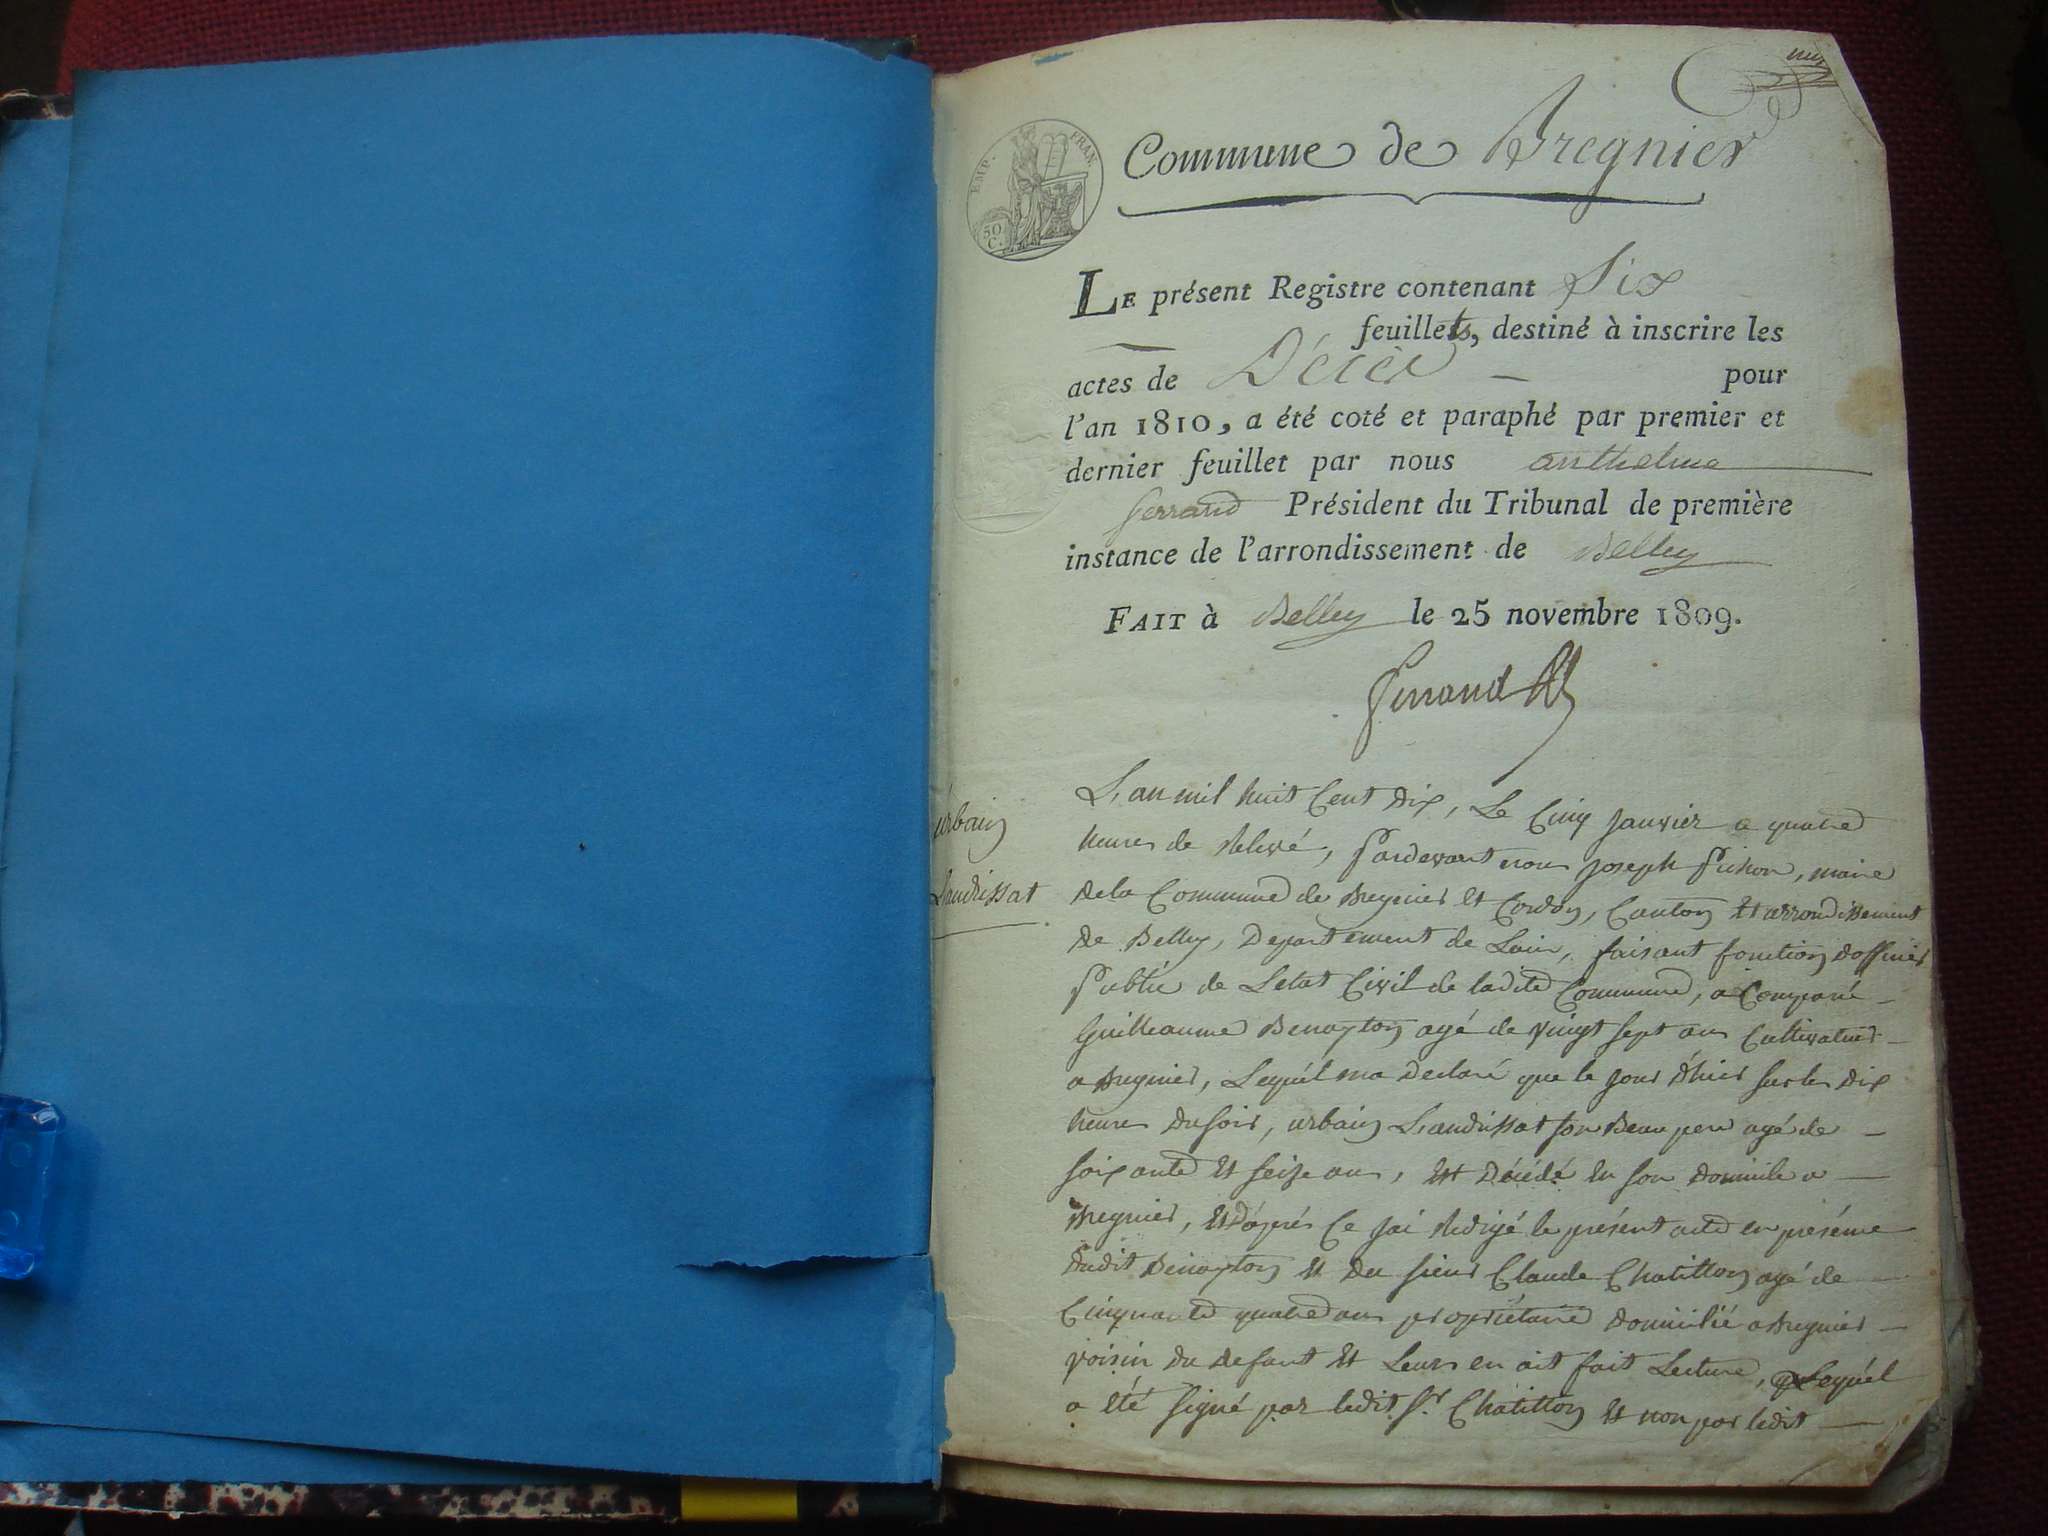 EMP. FRAN.
50 C.
Commune de Bregnier
LE présent Registre contenant Six
feuillets, destiné à inscrire les
actes de Décès pour
l'an 1810, a été coté et paraphé par premier et
dernier feuillet par nous anthelme
ferrand Président du Tribunal de première
instance de l'arrondissement de Belley
FAIT à Belley le 25 novembre 1809.
ferrand
urbain
Landrissat
L'an mil huit Cent dix, Le Cinq Janvier a quatre
heures de Relevé, Pardevant nous Joseph Pichon, maire
de la Commune de Bregnier et Cordon, Canton et arrondissement
de Belley, Departement de Lain, faisant fonction dofficier
Public de Letat Civil de ladite Commune, a Comparu
Guilleaume Benayton agé de vingt sept ans Cultivateur
a Bregnier, Lequél ma declaré que le jour d'hier sur les dix
heures du soir, urbain Landrissat son Beau pere agé de
soixante et seize ans, est décédé en son domicile a
Bregnier, et d'aprés Ce jai redigé le présent acte en présence
dudit Benayton et du sieur Claude Chatillon agé de
Cinquante quatre ans propriétaire domicilié a Bregnier
voisin du defunt et Leurs en ait fait Lecture, Lequél
a été signé par ledit Sr Chatillon et non par ledit